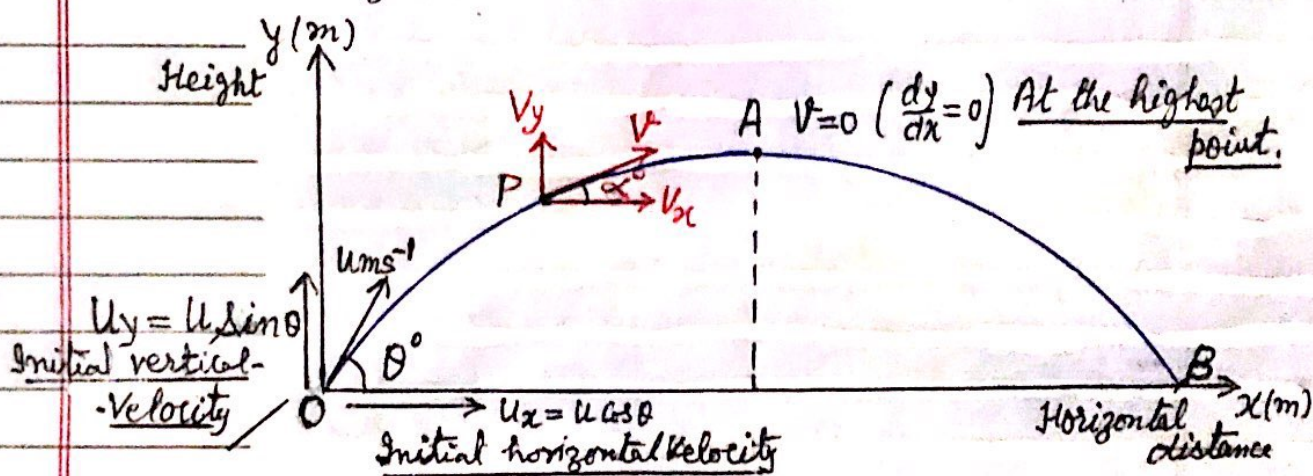 y (m)
Height
Vy
V
A V=0 (dy/dx = 0) At the highest
point.
P
α°
Vx
ums⁻¹
Uy = U Sinθ
Initial vertical-
-Velocity
θ°
O
Ux = u Cosθ
Initial horizontal Velocity
B
X(m)
Horizontal
distance